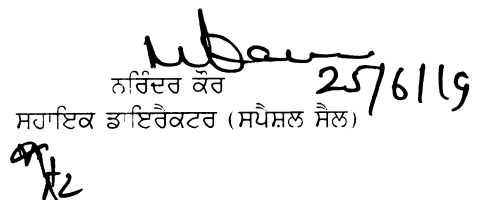 ਨਰਿੰਦਰ ਕੌਰ
25/6/19
ਸਹਾਇਕ ਡਾਇਰੈਕਟਰ (ਸਪੈਸ਼ਲ ਸੈਲ)